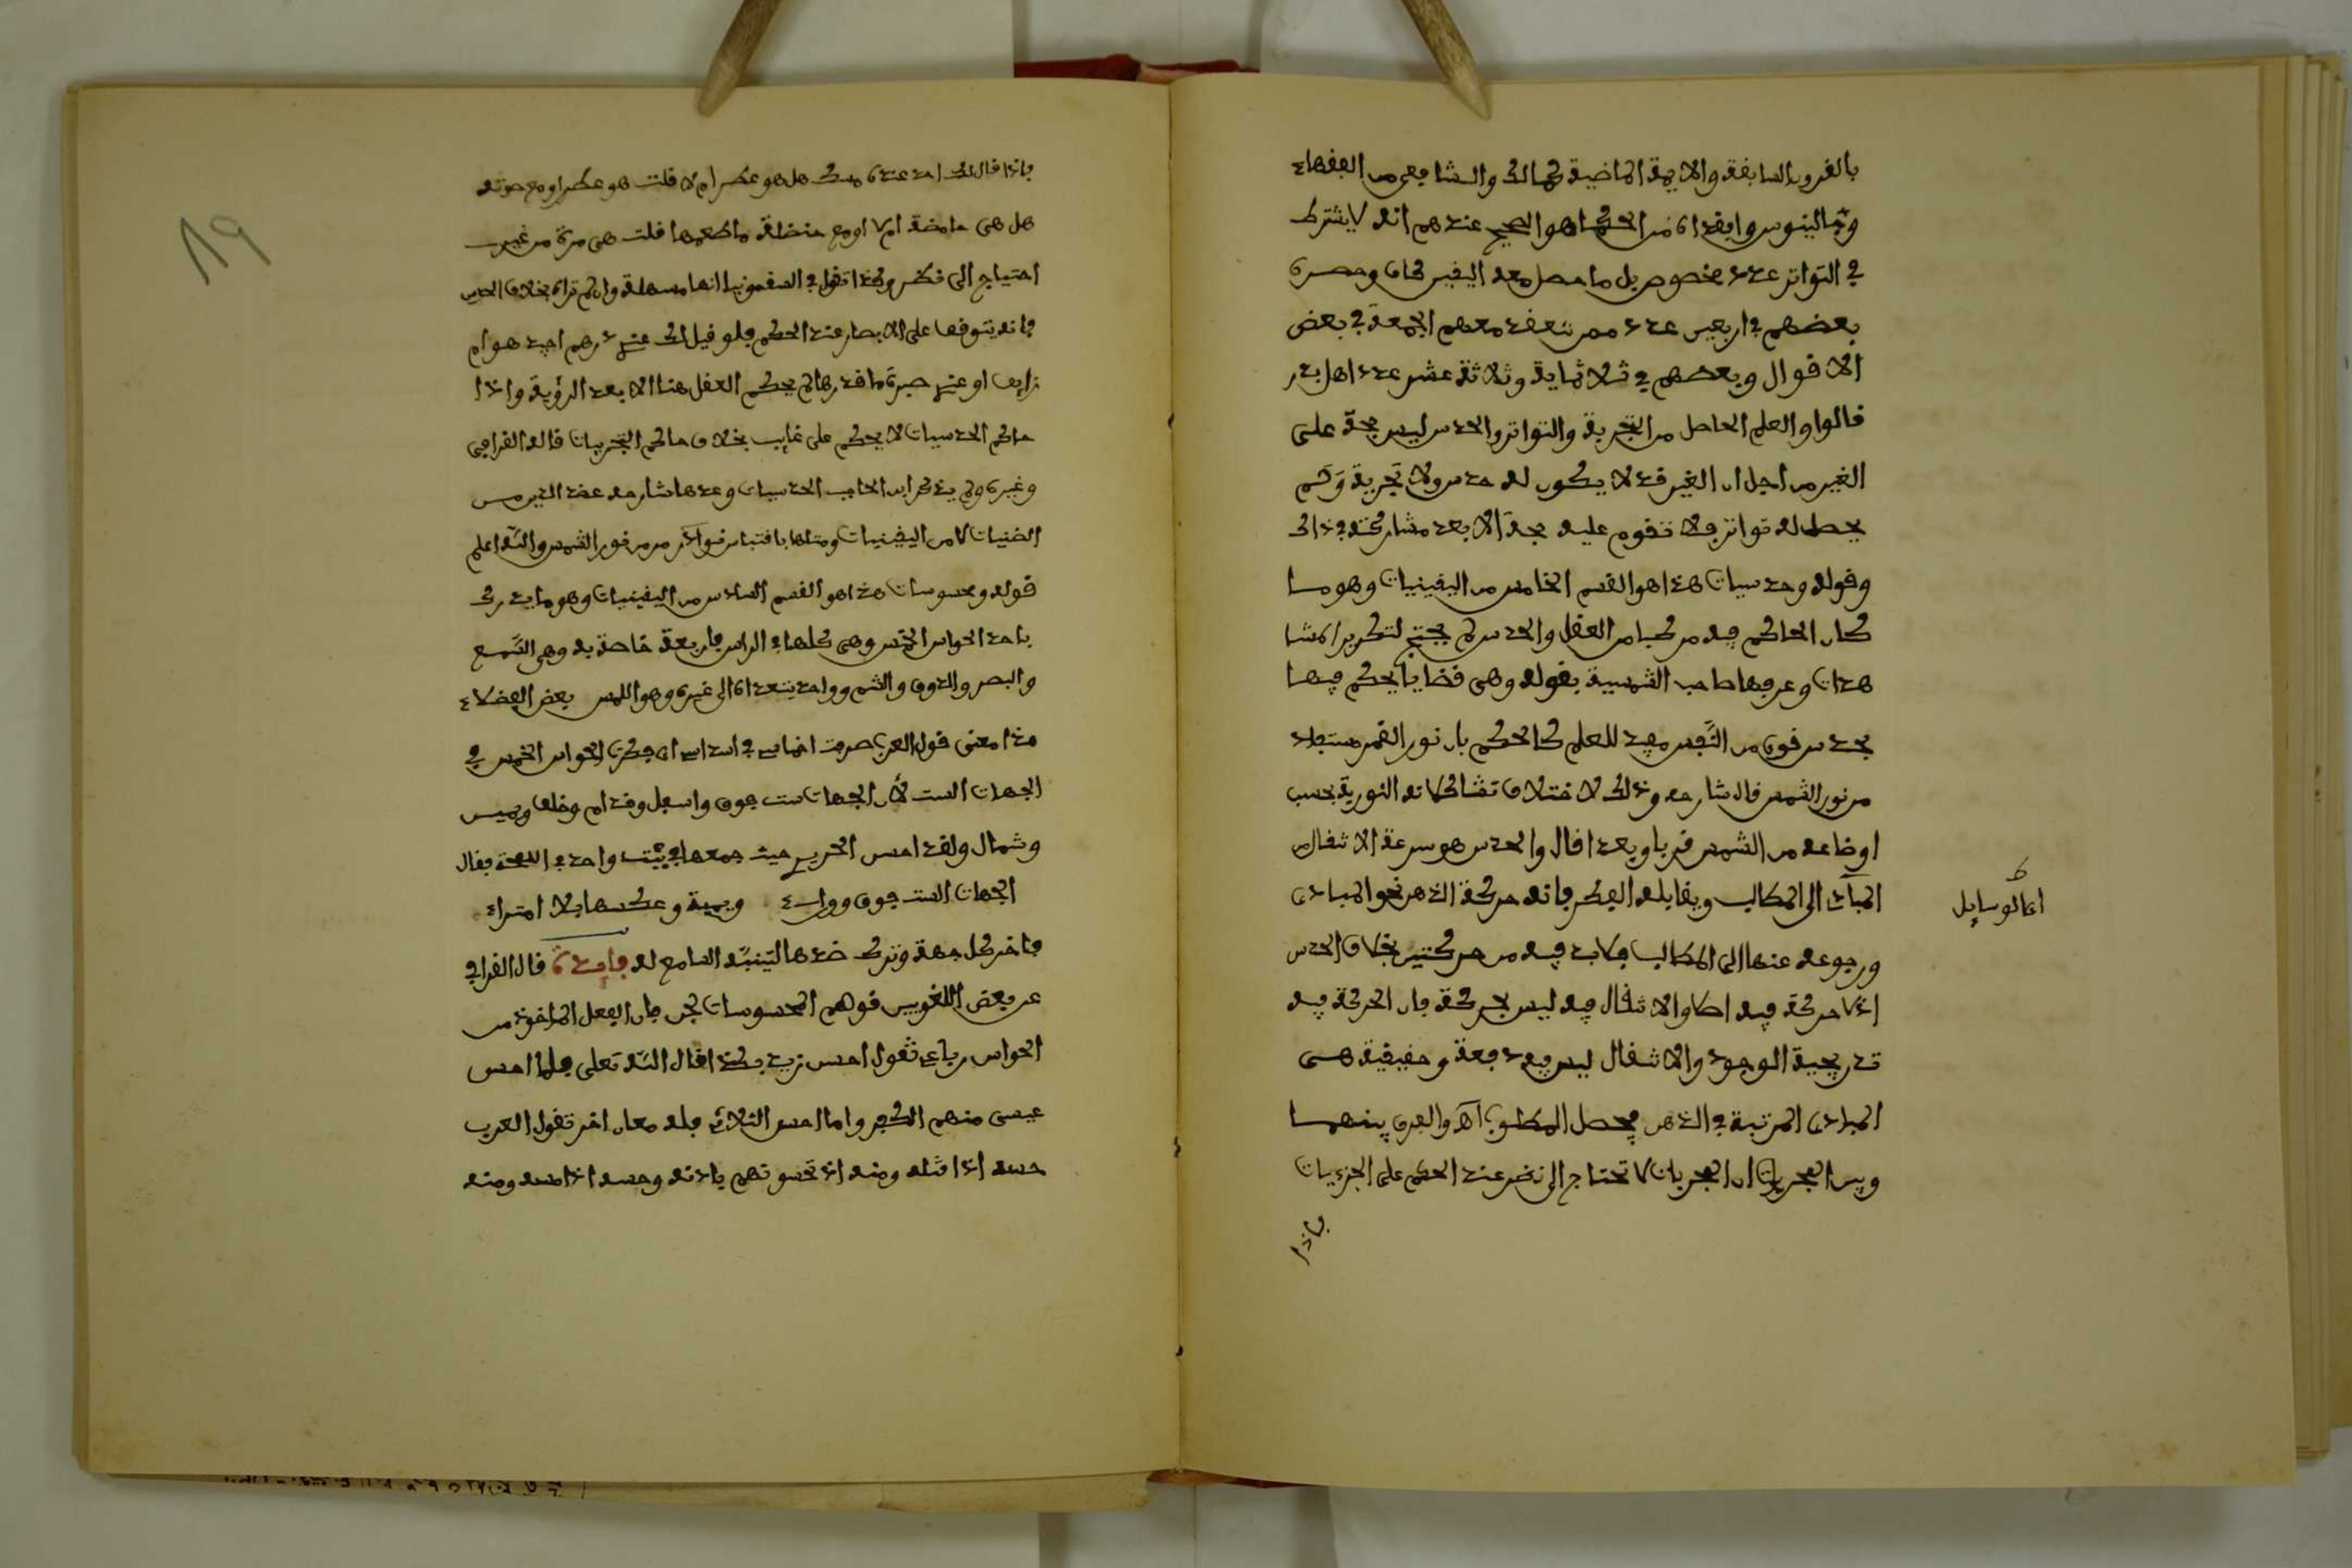 بالقرون السابقة والايمة الماضية كمالك والشافعي من الفقهاء
وجالينوس وابقراط من الحكما هو الصحيح عندهم انه لا يشترط
في التواتر عدد مخصوص بل ما حصل معه اليقين كاف وحصره
بعضهم في اربعين عدد ممن تنعقد معهم الجمعة في بعض
الاقوال وبعضهم في ثلاثماية وثلاثة عشر عدد اهل بدر
قالوا والعلم الحاصل من التجربة والتواتر والحدس ليس حجة على
الغير من اجل ان الغير قد لا يكون له حدس ولا تجربة ولم
يحصل له تواتر فلا تقوم عليه حجة الا بعد مشاركته في ذالك
وقوله وحدسيات هذا هو القسم الخامس من اليقينيات وهو ما
كان الحاكم فيه مركبا من العقل والحدس لم يحتج لتكرير المشا
هدات وعرفها صاحب الشمسية بقوله وهي قضايا يحكم فيها
بحدس قوي من النفس مفيد للعلم كالحكم بان نور القمر مستفاد
من نور الشمس قال شارحه وذلك لاختلاف تشكلاته النورية بحسب
اوضاعه من الشمس قربا وبعدا قال والحدس هو سرعة الانتقال من
المبادئ الى المطالب ويقابله الفكر فانه حركة الذهن نحو المبادي
ورجوعه عنها الى المطالب فلا بد فيه من حركتين بخلاف الحدس
اذ لا حركة فيه اصلا والانتقال فيه ليس بحركة فان الحركة فيه
تدريجية الوجود والانتقال ليس فيه دفعة وحقيقية هي
المبادي المرتبة في الذهن فيحصل المطلوب اهـ والفرق بينهما
وبين المجربات ان المجربات لا تحتاج الى نظر عند الحكم على الجزييات
فاذا
فاذا قال لك احد عنده مسك هل هو عطر ام لا قلت هو عطر او مع صوته
هل هي حامضة ام لا او مع حنظلة ما طعمها قلت هي مرة من غير
احتياج الى نظر وكذا تقول في السقمونيا انها مسهلة وان لم تراه بخلاف الحدس
فانه يتوقف على الابصار عند الحكم فلو قيل لك عندي درهم اجيد هو ام
زايف او عندي صبرة ما قدرها لم يحكم العقل هنا الا بعد الرؤية واذا
حاكم الحدسيات لا يحكم على غايب بخلاف حاكم التجربيات قاله القرافي
وغيره ولم يذكر ابن الحاجب الحدسيات وعدها شارحه عضد الدين من
الظنيات لا من اليقينيات ومثلها باقتباس نور القمر من نور الشمس والله اعلم
قوله ومحسوسات هذا هو القسم السادس من اليقينيات وهو ما يدرك
باحد الحواس الخمس وهي كلها في الراس فاربعة خاصة به وهي السمع
والبصر والذوق والشم وواحد يتعداه الى غيره وهو اللمس بعض الفضلاء
هذا معنى قول العرب ضربت اخماسي في اسداسي اي فكرت الحواس الخمس في
الجهات الست لان الجهات ست فوق واسفل وقدام وخلف ويمين
وشمال ولقد احسن الحريري حيث جمعها في بيت واحد في الملحة فقال
الجهات الست فوق ووراء ويمنة وعكسها بلا امتراء
فاخر كل جهة وترك ضدها ليتنبه السامع له فايدة قال القرافي
عن بعض اللغويين قولهم المحسوسات لحن فان الفعل الماخوذ من
الحواس رباعي تقول احس زيد بكذا قال الله تعلى فلما احس
عيسى منهم الكفر واما حس الثلاثي فله معان اخر تقول العرب
حسه اذا قتله ومنه اذ تحسونهم باذنه وحسه اذا مسه ومنه